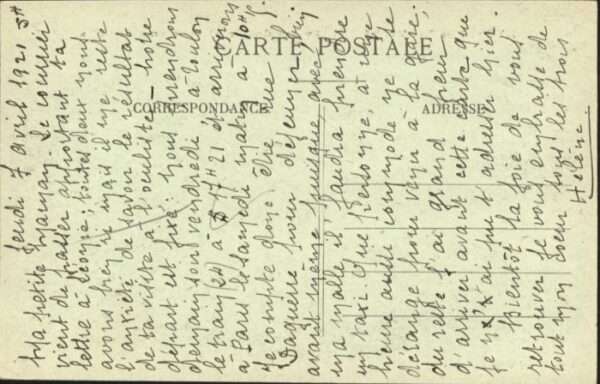 CARTE POSTALE
CORRESPONDANCE
ADRESSE
Jeudi 7 avril 1921 5H
Ma petite maman, le courrier
vient de passer apportant ta
lettre à Léonie; toutes deux nous
avons bien ri mais il me reste
l'anxiété de savoir le résultat
de ta visite à l'oculiste - Notre
départ est fixé: nous prendrons
demain soir vendredi à Toulon
le train (24) à 17H21 et arriverons
à Paris le samedi matin à 10H5.
Je compte donc être rue
Daguerre pour déjeuner bien
avant même puisque avec
ma malle il faudra prendre
un taxi. Que personne, à une
heure aussi commode ne se
dérange pour venir à la gare;
du reste j'ai grand peur
d'arriver avant cette carte que
je n'ai pu t'adresser hier.
Bientôt la joie de vous
retrouver je vous embrasse de
tout mon coeur tous les trois
Hélène